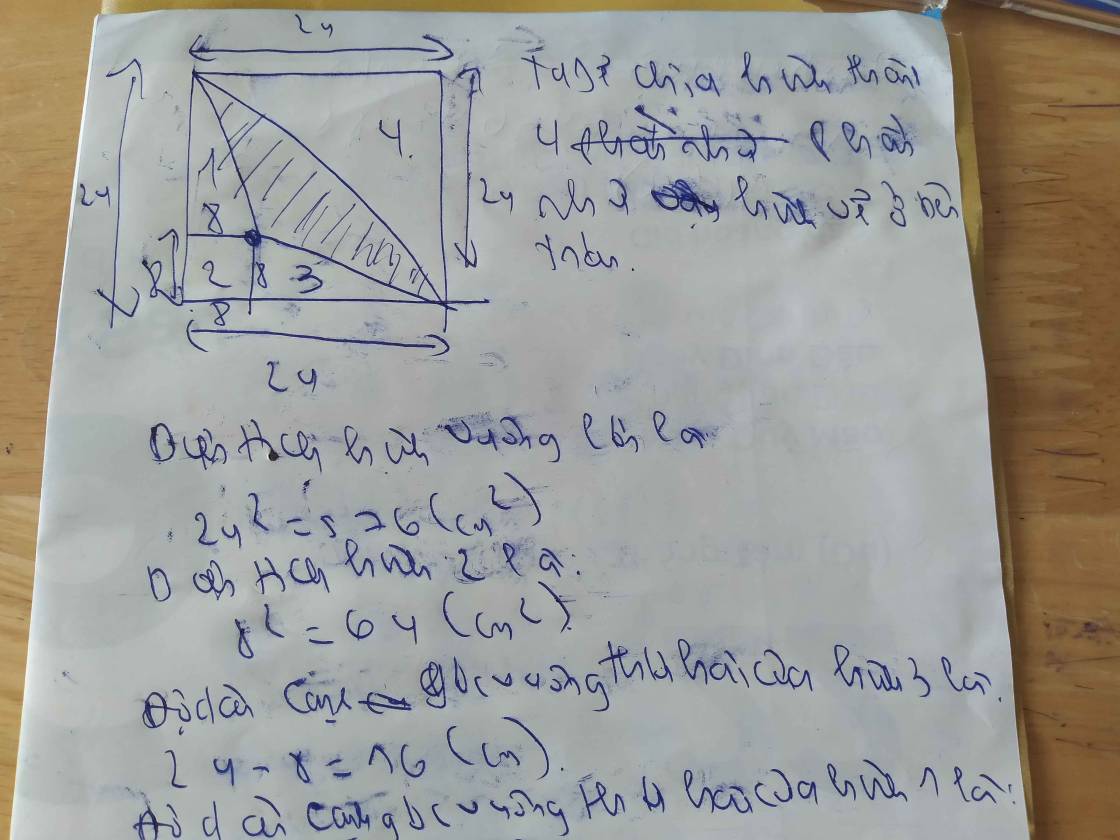 24
Ta sẽ chia hình thành
4 phần nhỏ phần
nhỏ hình vẽ ở bên
trên.
24
24
1
4
8
8
2
8
3
8
24
Diện tích hình vuông lớn là
24² = 576 (cm²)
Diện tích hình 2 là:
8² = 64 (cm²)
Độ dài cạnh góc vuông thứ hai của hình 3 là.
24 - 8 = 16 (cm).
Độ dài cạnh góc vuông thứ hai của hình 1 là: